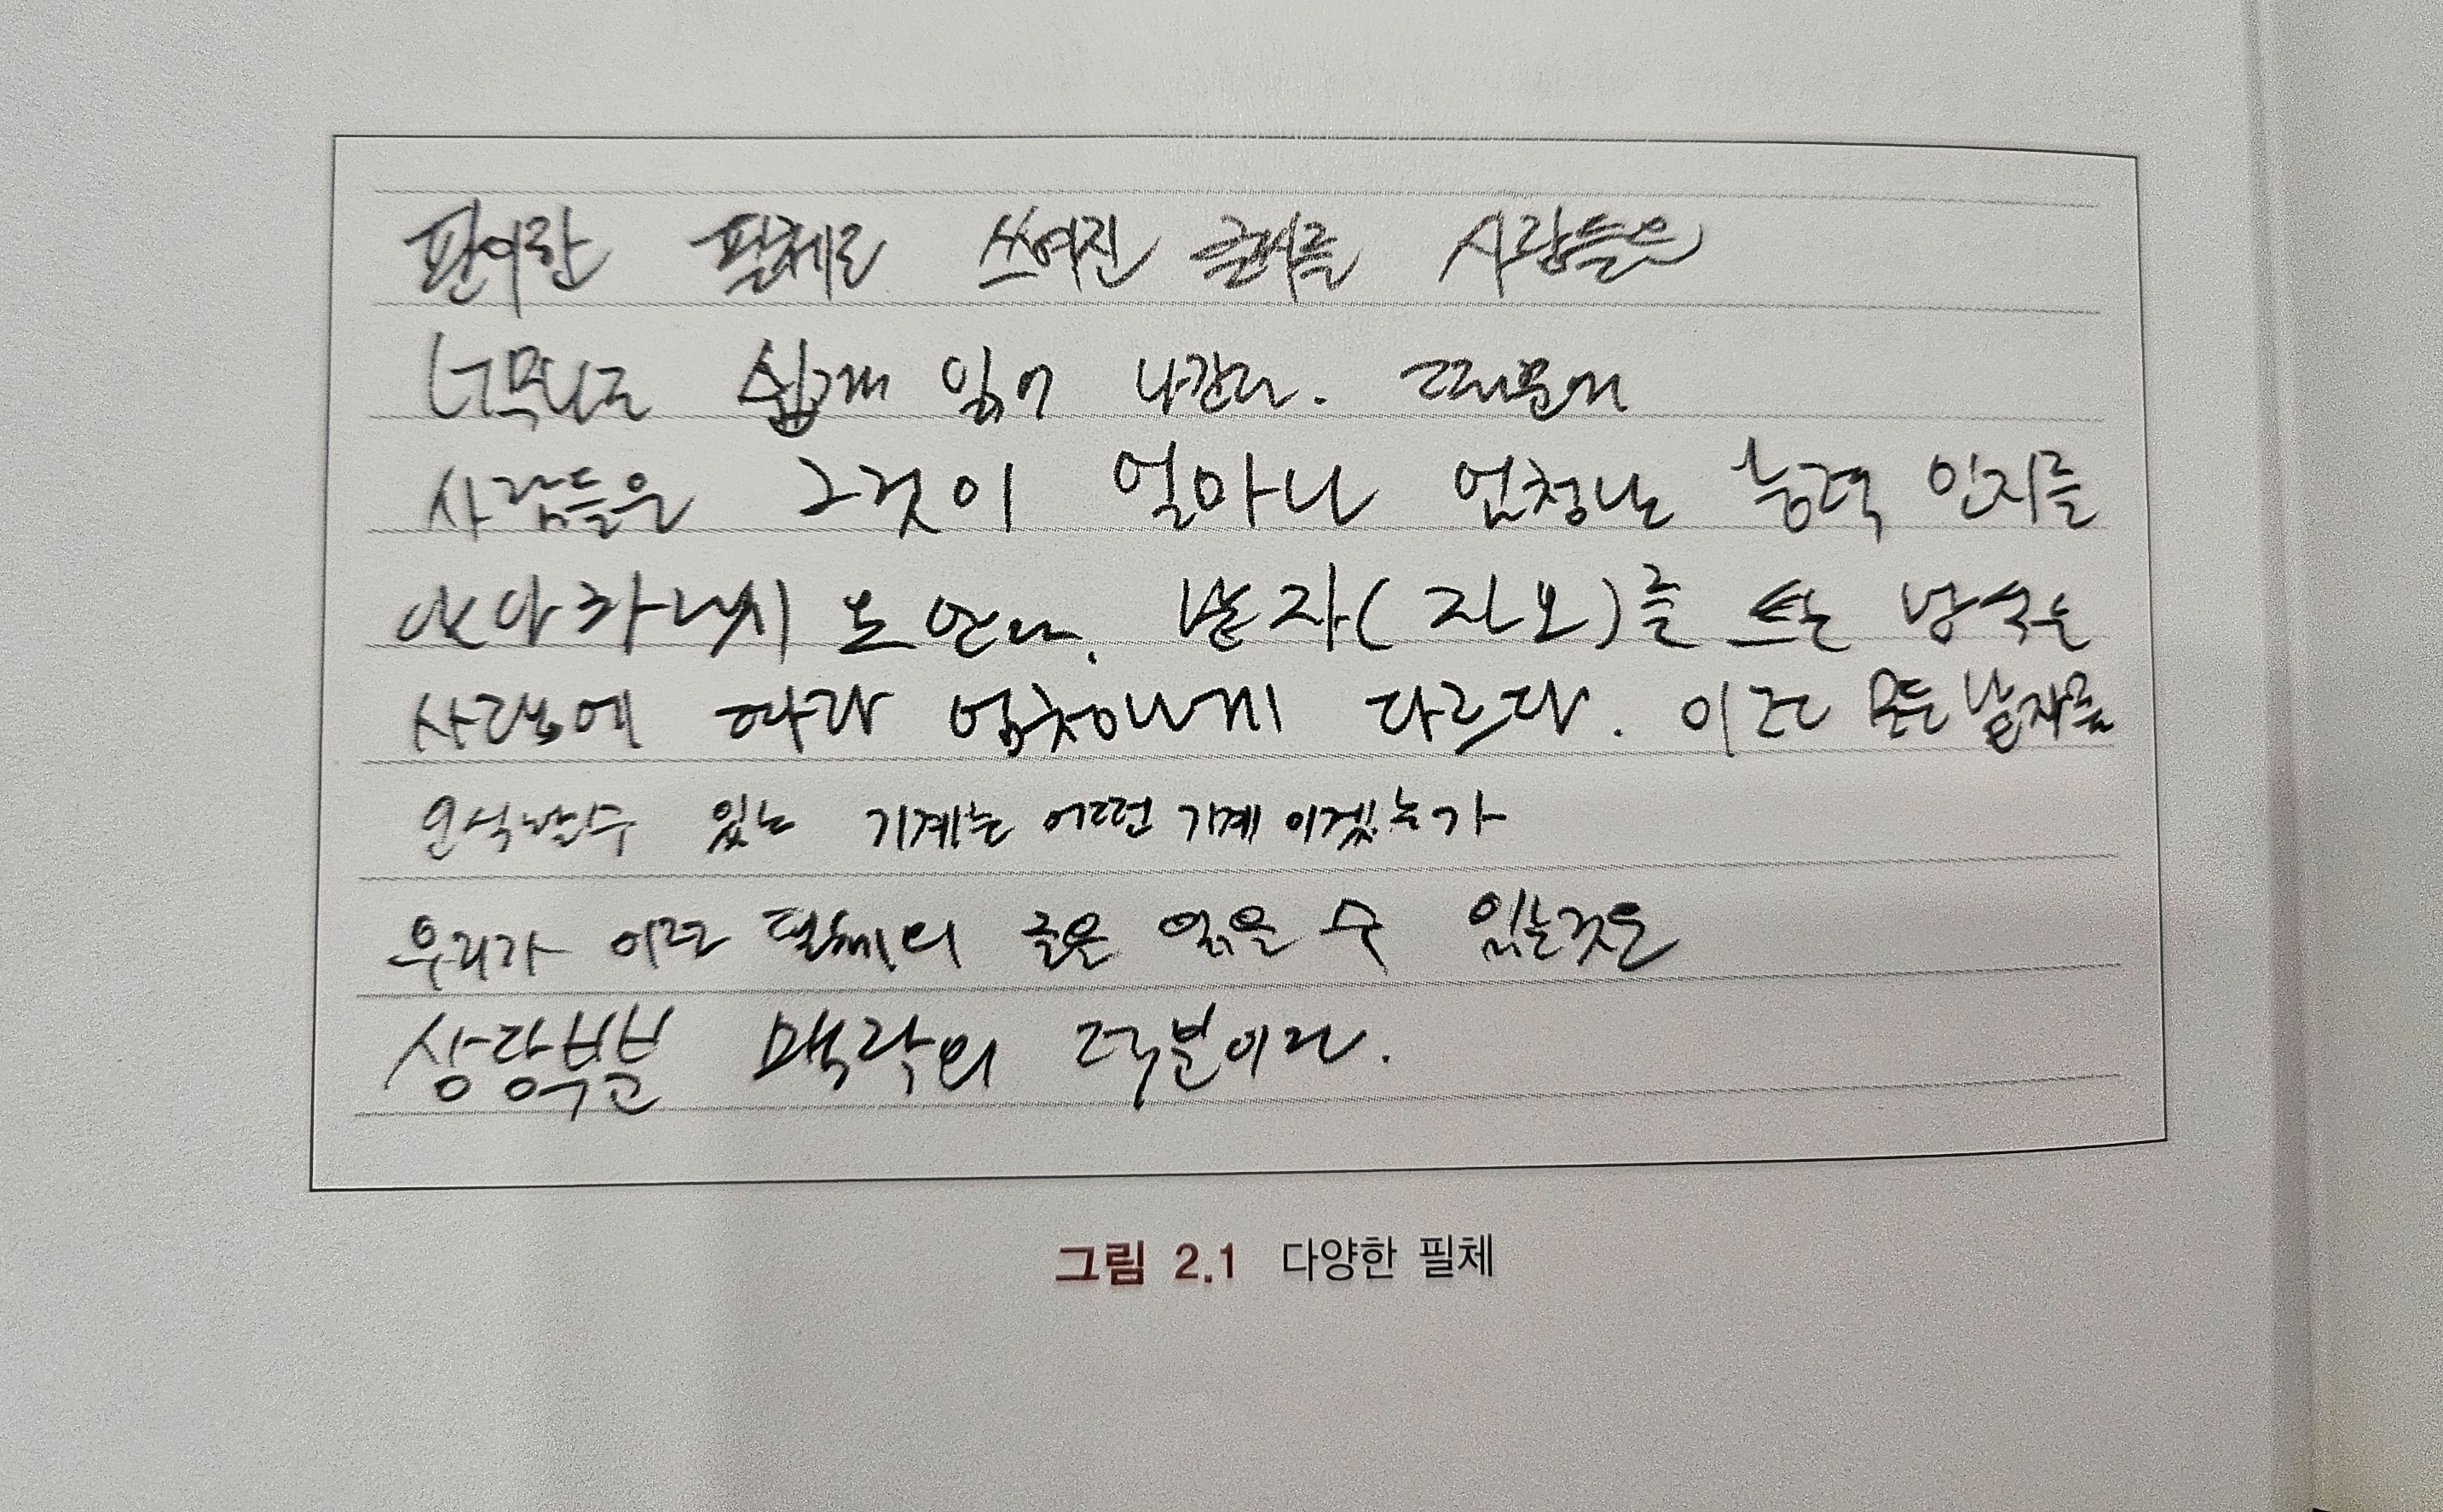 판이한 필체로 쓰여진 글씨를 사람들은
너무나도 쉽게 읽어 나간다. 때문에
사람들은 그것이 얼마나 엄청난 능력 인지를
알아차리지도 않는다. 낱자(자모)를 쓰는 방식은
사람에 따라 엄청나게 다르다. 이런 모든 낱자를
인식할 수 있는 기계는 어떤 기계 이겠는가
우리가 이런 필체의 글을 읽을 수 있는 것은
상당부분 맥락의 덕분이다.
그림 2.1 다양한 필체